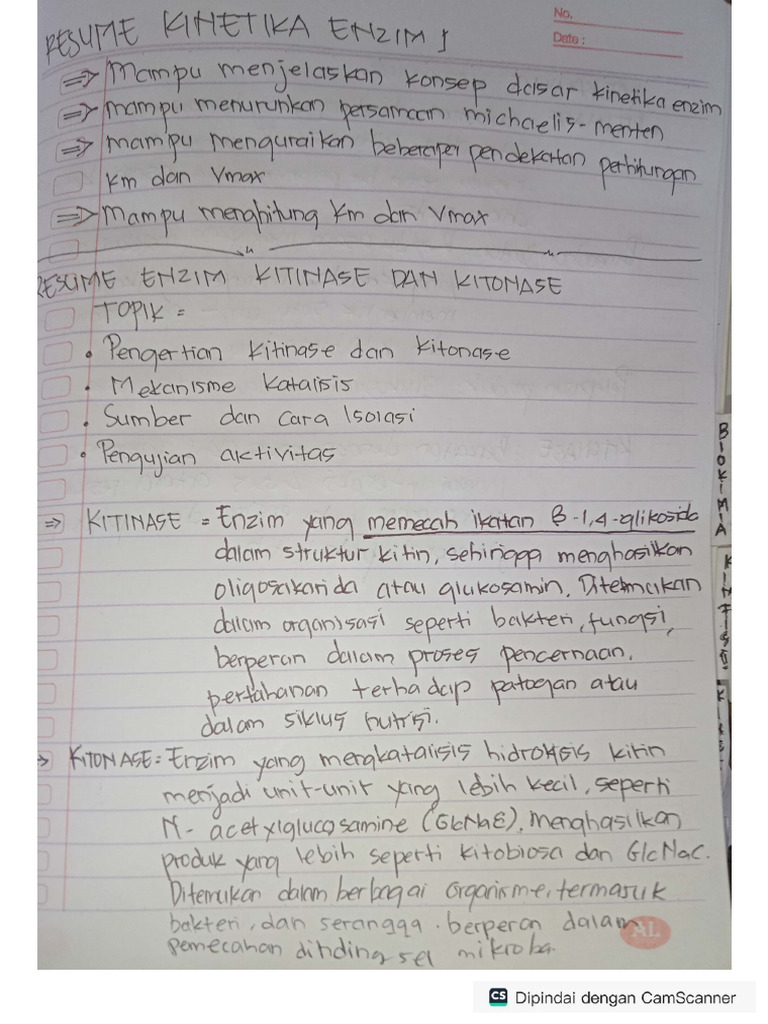 No.
Date :
RESUME KINETIKA ENZIM 1
=> Mampu menjelaskan konsep dasar kinetika enzim
=> mampu menurunkan persamaan michaelis-menten
=> mampu menguraikan beberapa pendekatan perhitungan
Km dan Vmax
=> Mampu menghitung Km dan Vmax
RESUME ENZIM KITINASE DAN KITONASE
TOPIK =
• Pengertian kitinase dan kitonase
• Mekanisme katalsis
• Sumber dan cara Isolasi
• Pengujian aktivitas
=> KITINASE = Enzim yang memecah ikatan β-1,4-glikosida
dalam struktur kitin, sehingga menghasilkan
oligosakarida atau glukosamin. Ditemukan
dalam organisasi seperti bakteri, fungsi,
berperan dalam proses pencernaan,
pertahanan terhadap patogan atau
dalam siklus nutrisi.
=> KITONASE = Enzim yang mengkatalsis hidrolisis kitin
menjadi unit-unit yang lebih kecil, seperti
N-acetylglucosamine (GlcNaE), menghasilkan
produk yang lebih seperti kitobiosa dan GlcNac.
Ditemukan dalam berbagai organisme, termasuk
bakteri, dan serangga. berperan dalam
pemecahan dinding sel mikroba.
AL
BIOKIMIA
CS Dipindai dengan CamScanner